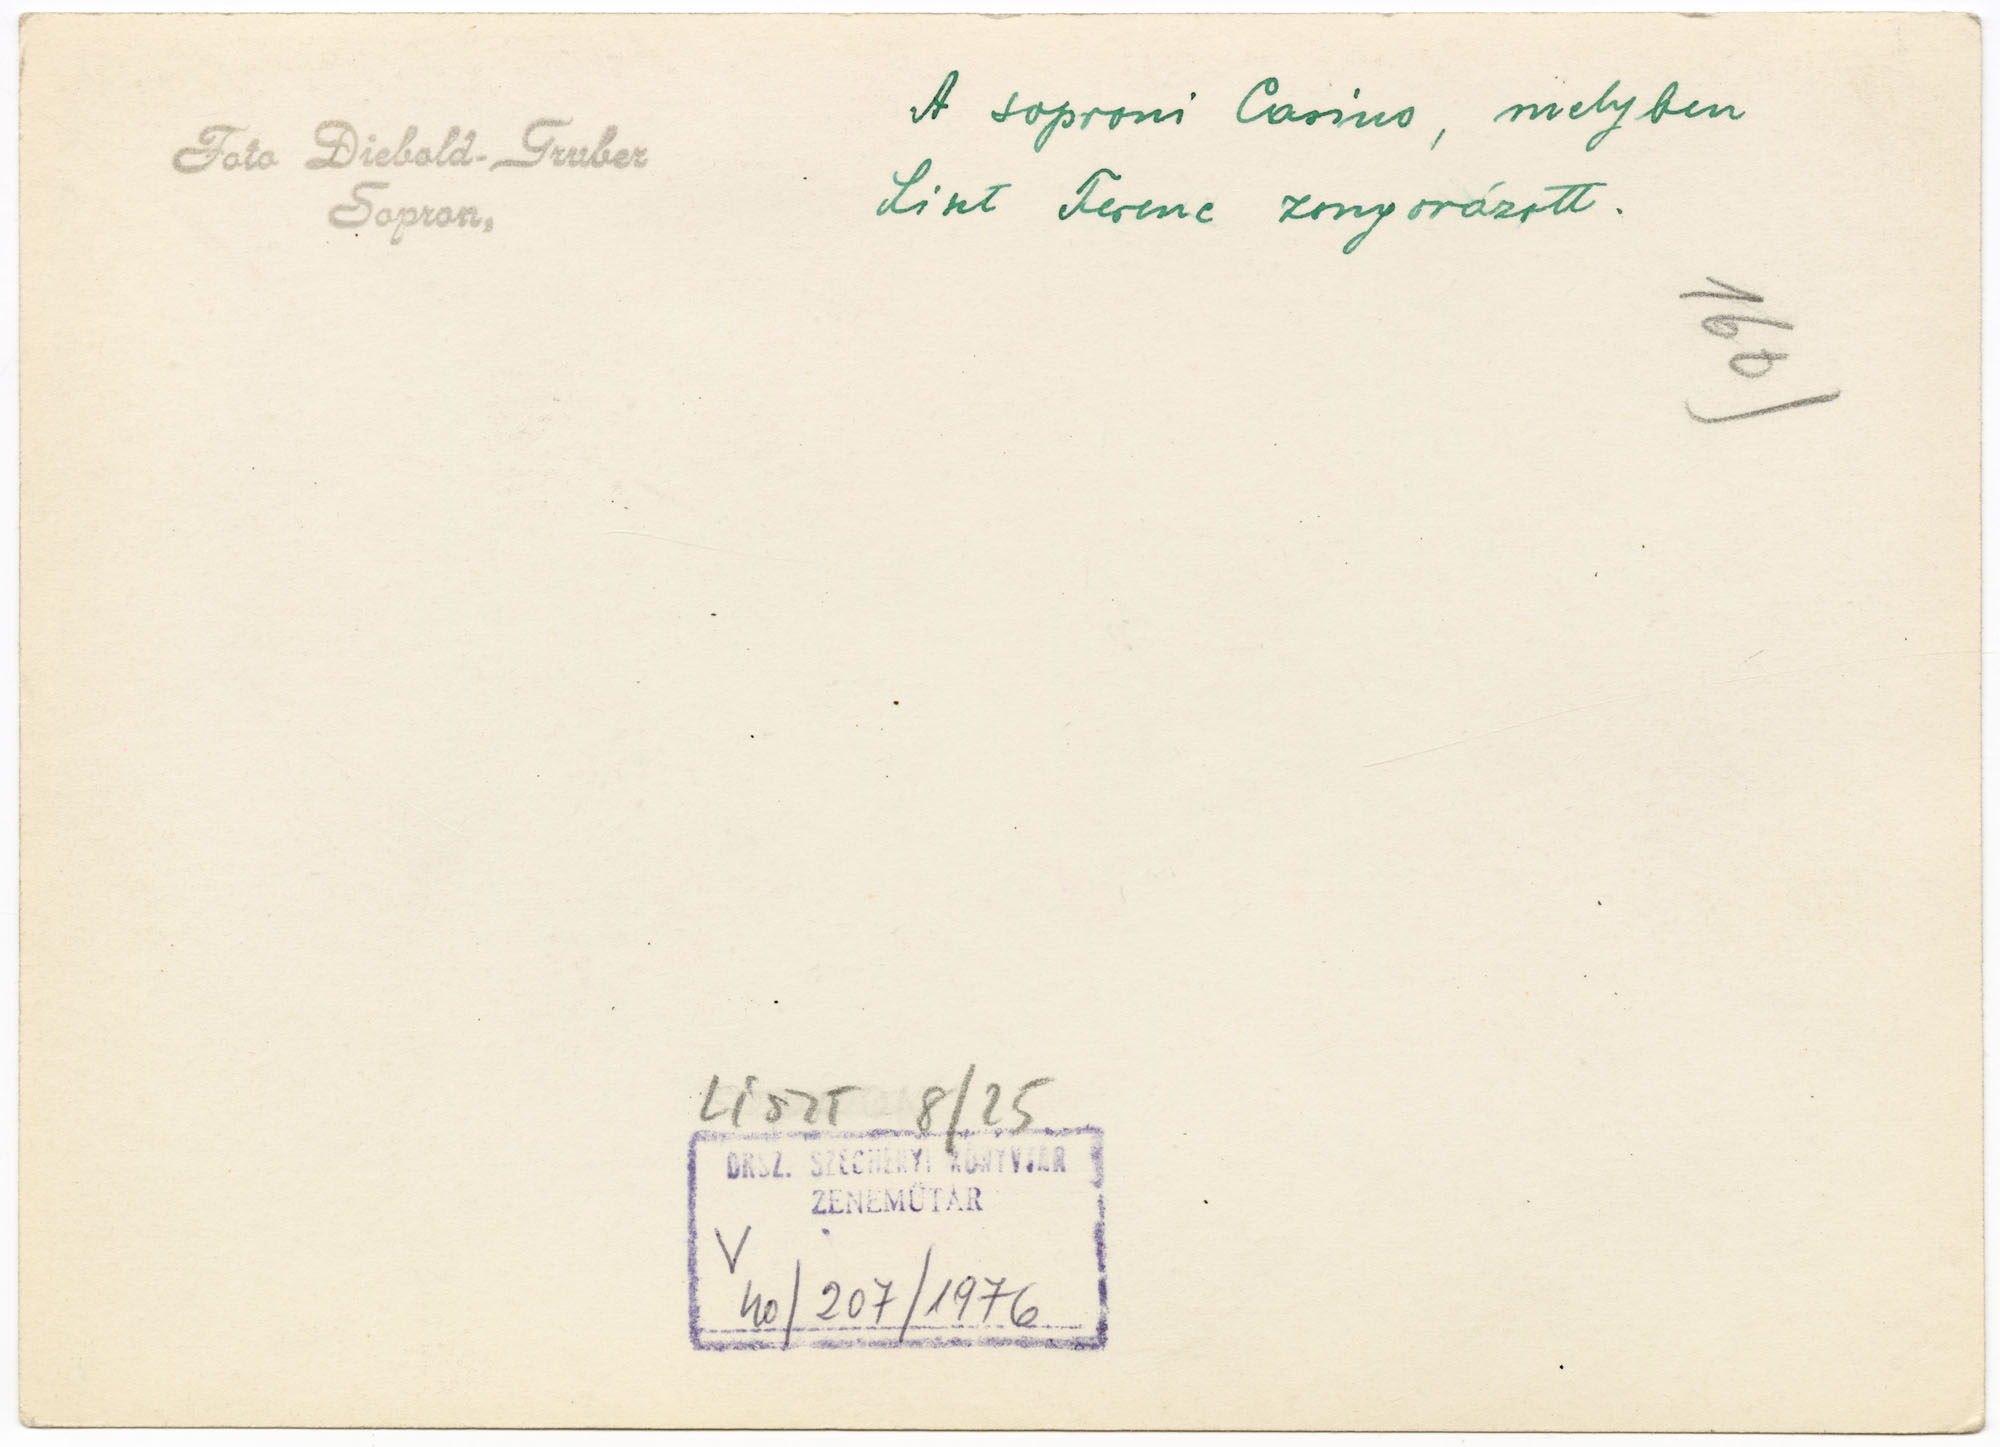 Foto Diebold-Gruber
Sopron,
A soproni Casino, melyben
Liszt Ferenc zongorázott.
16b)
LISZT 8/25
ORSZ. SZÉCHÉNYI KÖNYVTÁR
ZENEMŰTÁR
V
40/207/1976